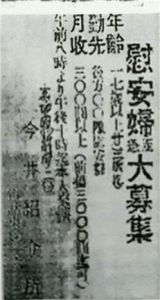 慰安婦至急大募集
年齢 一七歳以上廿三歳迄
勤先 後方〇〇隊慰安部
月収 三〇〇圓以上（前借三〇〇〇圓迄可）
午前八時より午後十時迄本人来談
今井紹介所